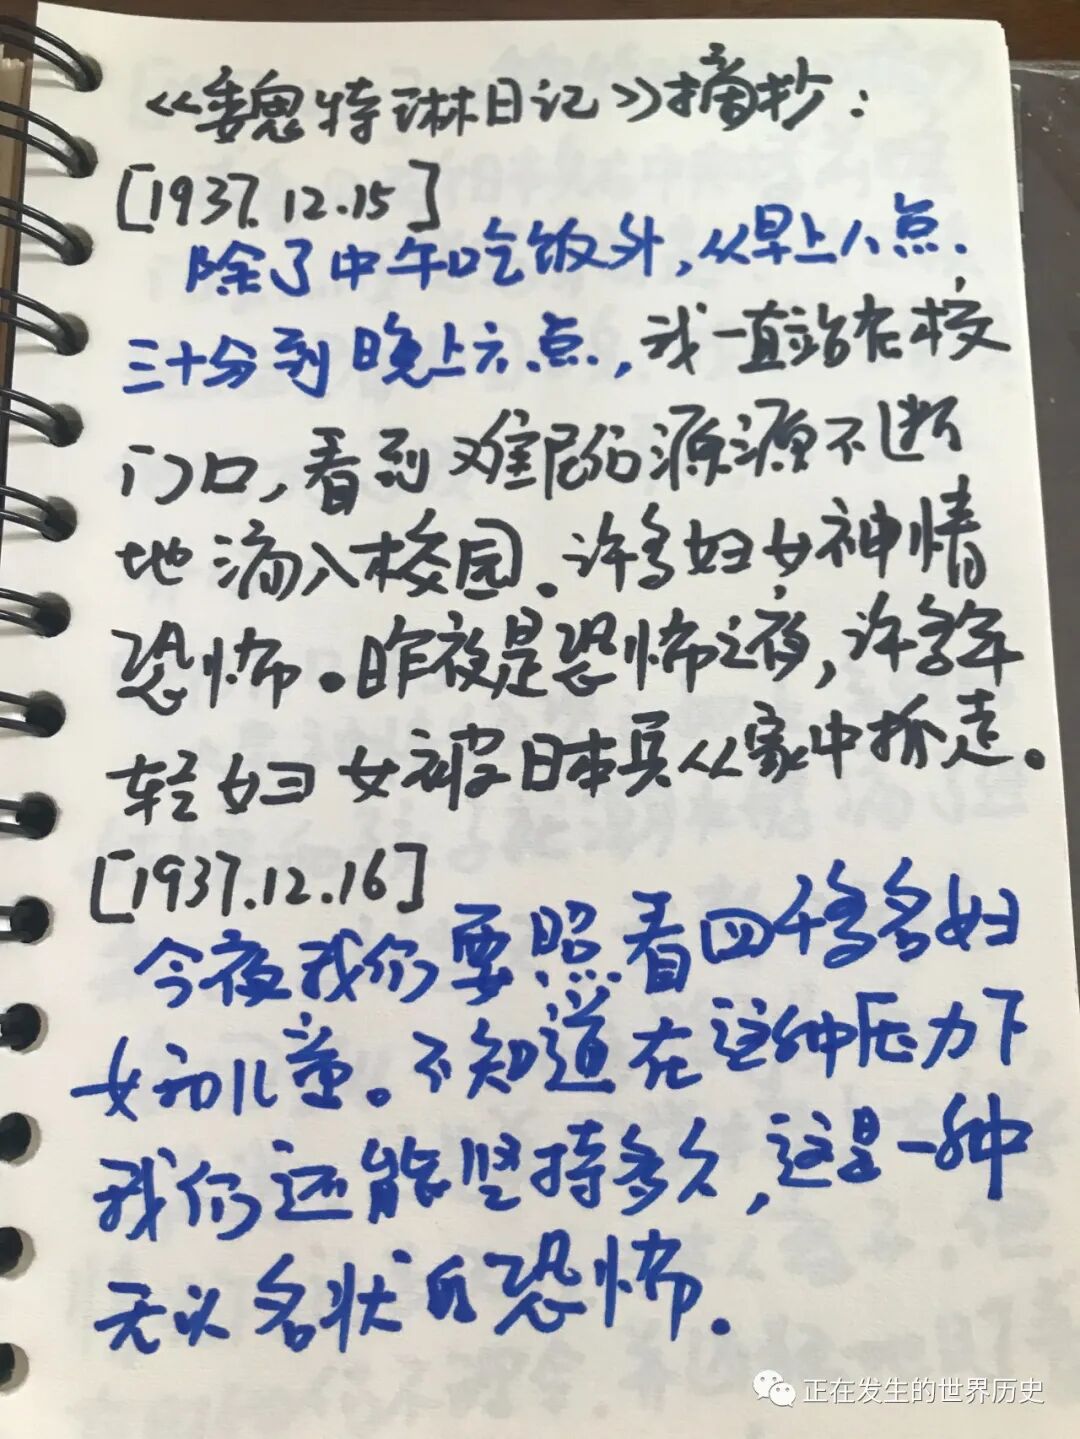 《魏特琳日记》摘抄：
[1937.12.15]
除了中午吃饭外，从早上八点
三十分到晚上六点，我一直站在校
门口，看到难民们源源不断
地涌入校园。许多妇女神情
恐怖。昨夜是恐怖之夜，许多年
轻妇女被日本兵从家中抓走。
[1937.12.16]
今夜我们要照看四千多名妇
女和儿童。不知道在这种压力下
我们还能坚持多久，这是一种
无以名状的恐怖。
正在发生的世界历史